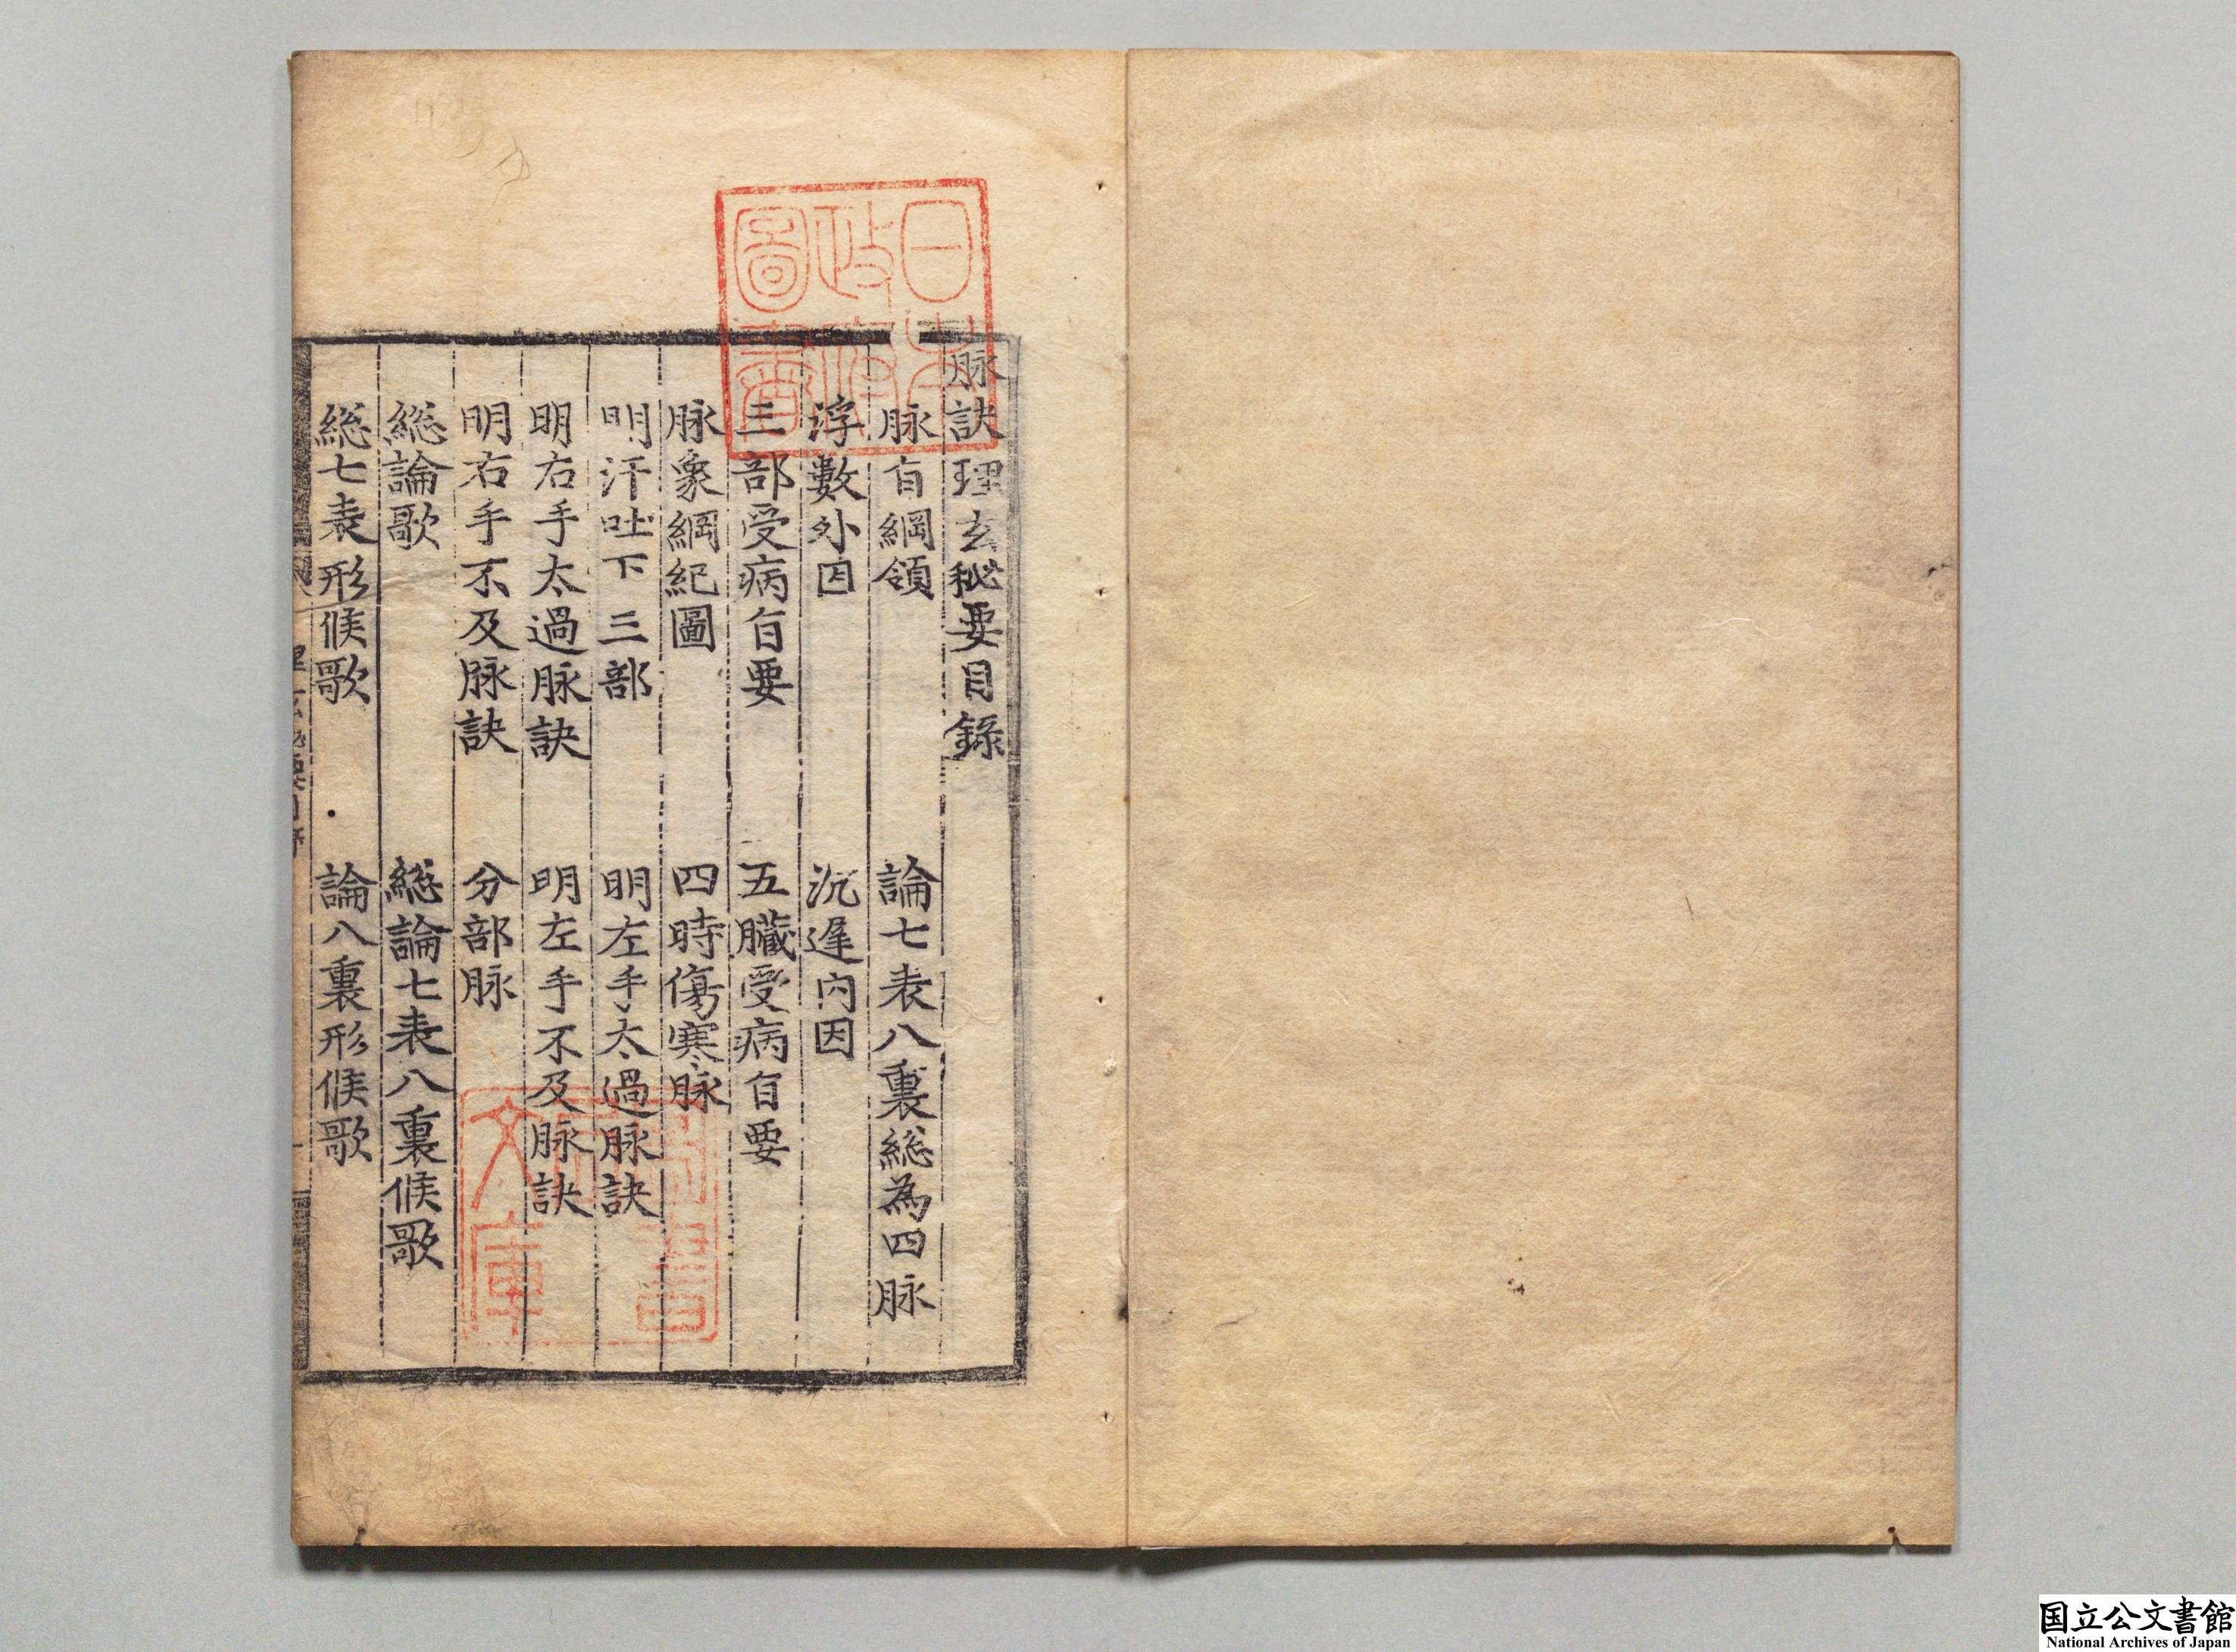 脉訣理玄秘要目錄
脉有綱領　論七表八裏総為四脉
浮數外因　沉遲内因
三部受病旨要　五臓受病旨要
脉象綱紀圖　四時傷寒脉
明汗吐下三部　明左手太過脉訣
明右手太過脉訣　明左手不及脉訣
明右手不及脉訣　分部脉
総論歌　総論七表八裏候歌
総七表形候歌　論八裏形候歌
日本
政府
圖書
文庫
国立公文書館
National Archives of Japan